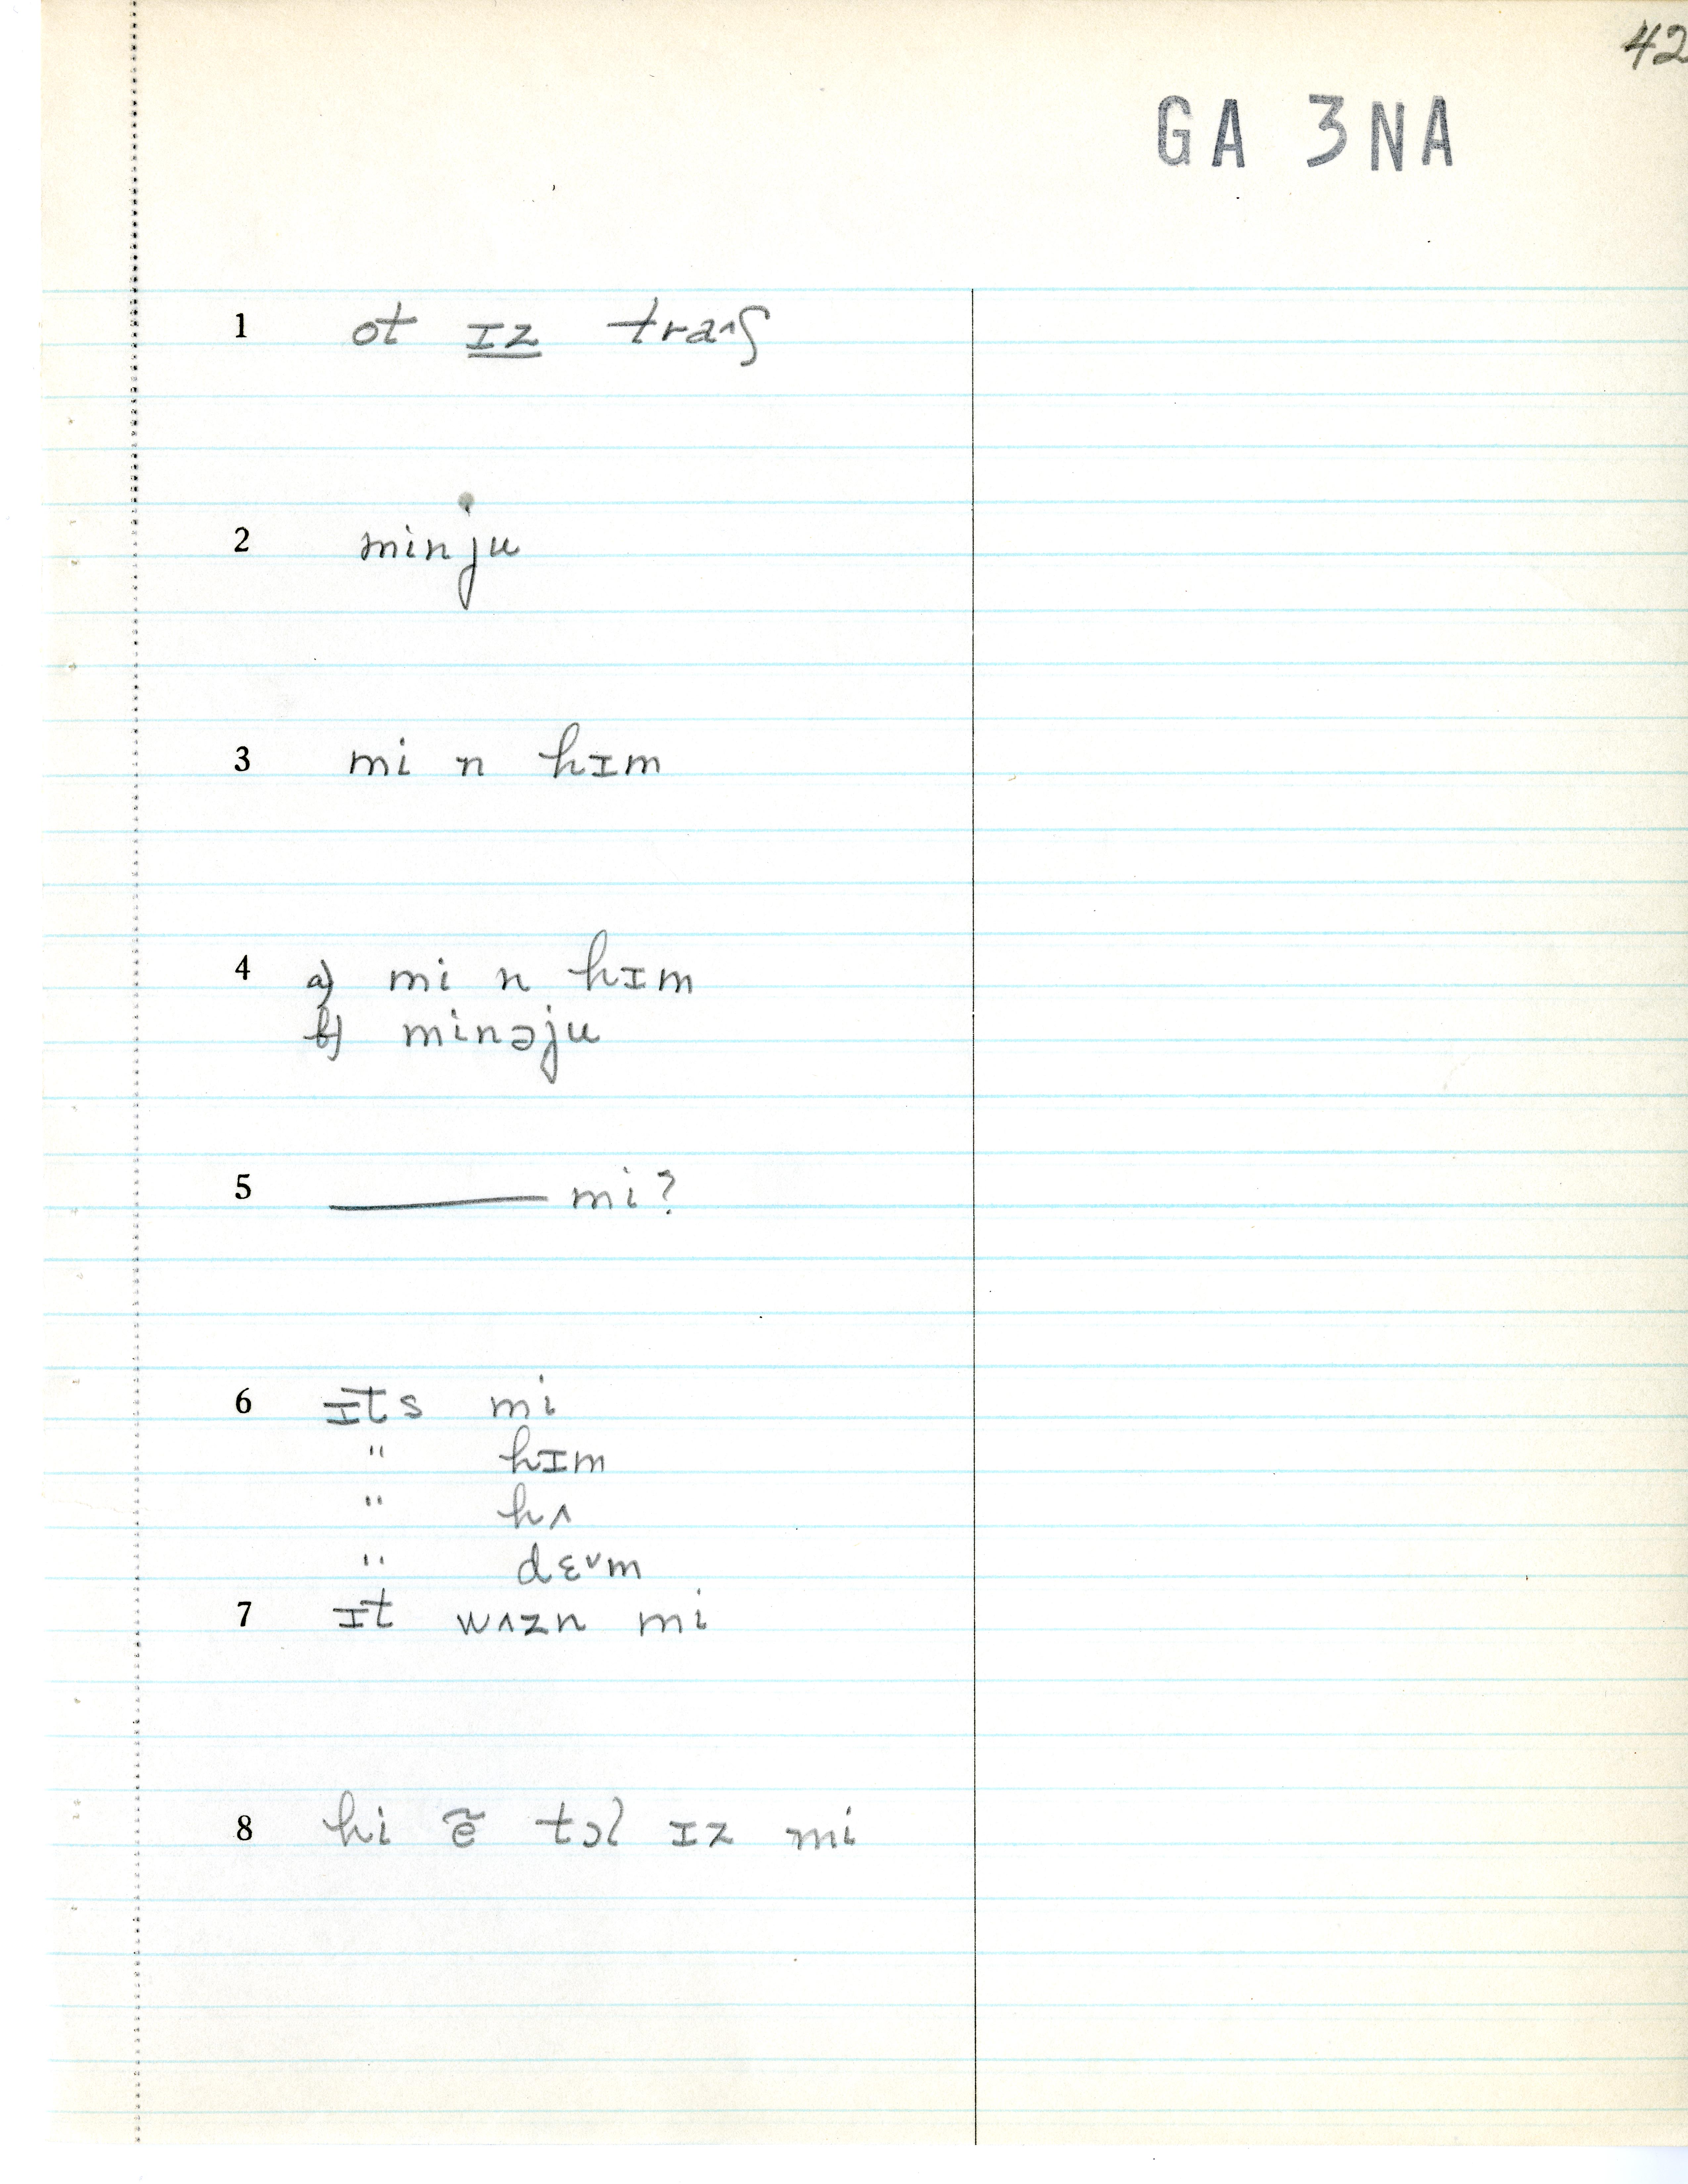 42
GA 3NA
1 ot ɪz traᶺʃ
2 minju
3 mi n hɪm
4 a) mi n hɪm
b) minəju
5 ——— mi?
6 ɪts mi
" hɪm
" hʌ
" dɛᵛm
7 ɪt wʌzn mi
8 hi ẽ tɔl ɪz mi